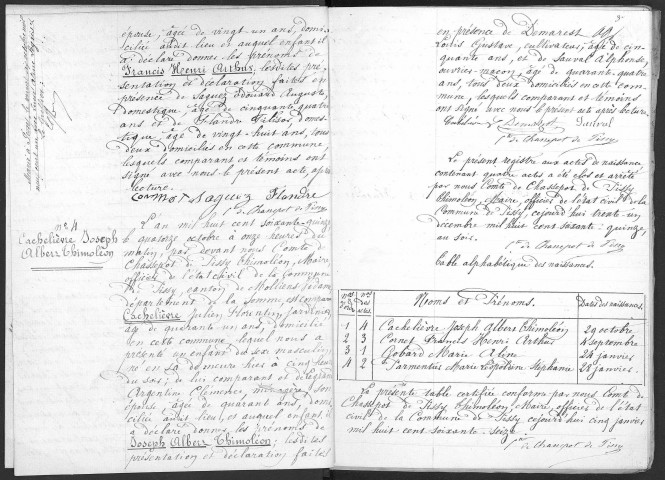 épouse, âgée de vingt-un ans, domi-
ciliée audit lieu et auquel enfant il
a déclaré donner les prénoms de
Francis Henri Arthur, lesdites pré-
sentation et déclaration faites en
présence de Saguez Edouard Auguste,
domestique, âgé de cinquante quatre
ans et de Flandre Elisée, domes-
tique âgé de vingt-huit ans, tous
deux domiciliés en cette commune,
lesquels comparant et témoins ont
signé avec nous le présent acte, après
lecture.
Cornet Saguez Flandre
Cte de Chassepot de Pissy
n° 4
Cachelièvre Joseph
Albert Thimoléon
L'an mil huit cent soixante-quinze
le quatorze octobre à onze heures du
matin, par devant nous Comte de
Chassepot de Pissy Thimoléon, Maire
officier de l'état civil de la Commune
de Pissy, canton de Molliens-Vidame
département de la Somme, est comparu
Cachelièvre Julien Florentin, jardinier,
âgé de quarante un ans, domicilié
en cette commune, lequel nous a
présenté un enfant du sexe masculin
né en sa demeure hier à cinq heures
du soir; de lui comparant et de
Argentine ménagère, son
épouse, âgée de quarante ans, domi-
ciliée audit lieu, et auquel enfant il
a déclaré donner les prénoms de
Joseph Albert Thimoléon; lesdites
présentation et déclaration faites
3
en présence de Demarest
Louis Gustave, cultivateur, âgé de cin-
quante ans, et de Sauval Alphonse,
ouvrier-maçon, âgé de quarante quatre
ans, tous deux domiciliés en cette com-
mune, lesquels comparant et témoins
ont signé avec nous le présent acte après lecture.
Cachelièvre Demarest Sauval
Cte de Chassepot de Pissy
Le présent registre aux actes de naissance
contenant quatre actes a été clos et arrêté
par nous Comte de Chassepot de Pissy
Thimoléon, Maire, officier de l'état civil de la
Commune de Pissy, cejourd'hui trente-un
décembre mil huit cent soixante-quinze,
au soir.
Cte de Chassepot de Pissy
Table alphabétique des naissances.
Nos d'ordre Nos des actes Noms et Prénoms. Dates des naissances.
1 4 Cachelièvre Joseph Albert Thimoléon 29 octobre.
2 3 Cornet Francis Henri Arthur 4 septembre
3 1 Gobard Marie Aline 24 janvier
4 2 Parmentier Marie Léopoldine Stéphanie 28 janvier.
La présente table certifiée conforme par nous Comte de
Chassepot de Pissy Thimoléon, Maire, officier de l'état
civil de la Commune de Pissy, cejourd'hui cinq janvier
mil huit cent soixante-seize.
Cte de Chassepot de Pissy